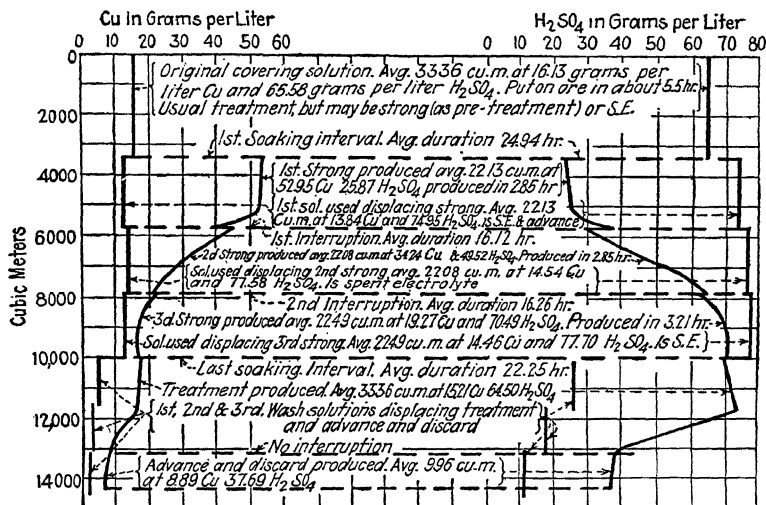 Cu in Grams per Liter H₂SO₄ in Grams per Liter
0 10 20 30 40 50 60 0 10 20 30 40 50 60 70 80
0
Original covering solution. Avg. 3336 cu.m. at 16.13 grams per
liter Cu and 65.58 grams per liter H₂SO₄. Put on are in about 5.5 hr.
Usual treatment, but may be strong (as pre-treatment) or S.E.
2000
1st. Soaking interval. Avg. duration 24.94 hr.
4000
1st. Strong produced avg. 22.13 cu.m. at
52.95 Cu 25.87 H₂SO₄ produced in 2.85 hr.
1st. sol. used displacing strong. Avg. 22.13
Cu.m. at 13.84 Cu and 74.95 H₂SO₄. is S.E. & advance
6000
1st. Interruption. Avg. duration 16.72 hr.
2d Strong produced avg. 22.08 cu.m. at 34.24 Cu & 49.52 H₂SO₄. Produced in 2.85 hr.
Sol. used displacing 2nd strong avg. 22.08 cu.m. at 14.54 Cu
and 77.58 H₂SO₄. Is spent electrolyte
8000
2nd Interruption. Avg. duration 16.26 hr.
3d. Strong produced avg. 22.49 cu.m. at 19.27 Cu and 70.49 H₂SO₄. Produced in 3.21 hr.
Sol. used displacing 3rd strong. Avg. 22.49 cu.m. at 14.46 Cu and 77.70 H₂SO₄. Is S.E.
10,000
Last soaking. Interval. Avg. duration 22.25 hr.
Treatment produced. Avg. 3336 cu.m. at 15.21 Cu 64.50 H₂SO₄
1st, 2nd & 3rd. Wash solutions displacing treatment
and advance and discard
12,000
No interruption
Advance and discard produced. Avg. 996 cu.m.
at 8.89 Cu 37.69 H₂SO₄
14,000
Cubic Meters
0 10 20 30 40 50 60 0 10 20 30 40 50 60 70 80